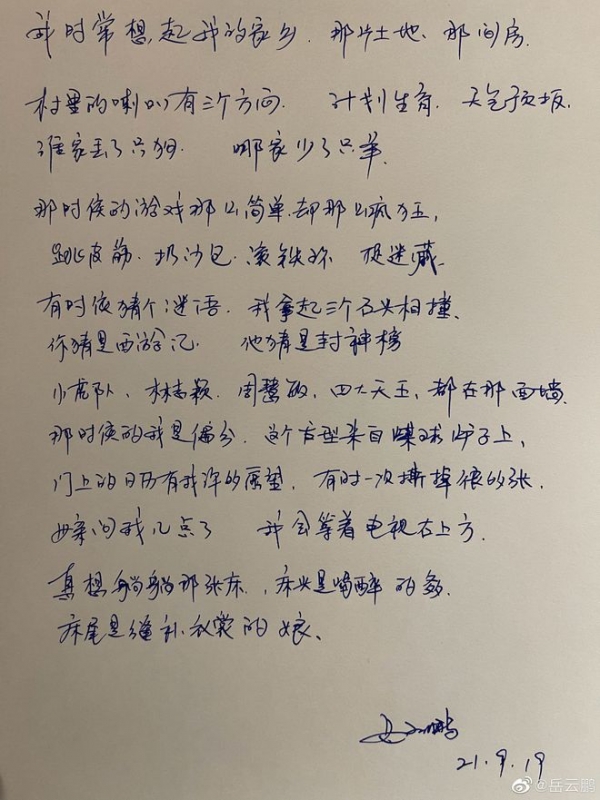 我时常想起我的家乡.那片土地、那间房.
村里的喇叭有三个方向. 计划生育. 天气预报.
谁家丢了只狗. 哪家少了只羊.
那时候的游戏那么简单.却那么疯狂,
跳皮筋.扔沙包.滚铁环 捉迷藏.
有时候猜个谜语.我拿起三个石头相撞、
你猜是西游记. 他猜是封神榜
小虎队、林志颖.周慧敏,四大天王,都在那面墙.
那时候的我是偏分.这个发型来自煤球炉子上,
门上的日历有我许的愿望.有时一次撕掉很多张.
母亲问我几点了 我会等着电视右上方.
真想躺躺那张床.,床头是喝醉的爹.
床尾是缝补衣裳的娘、
岳云鹏
21.9.19
@岳云鹏